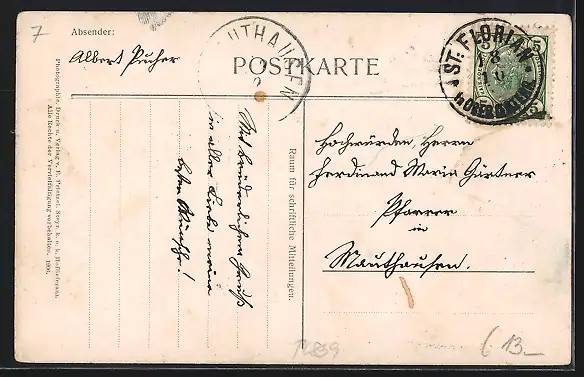 7
Absender:
Albert Pucher
UTHAUSEN
POSTKARTE
ST. FLORIAN
18
10
5
Photographie, Druck u. Verlag v. E. Prietzel, Steyr, k. u. k. Hoflieferant.
Alle Rechte der Vervielfältigung vorbehalten. 1906.
Mit brüderlichem Gruß
in aller Liebe meine
besten Wünsche!
Raum für schriftliche Mitteilungen.
Hochwürden, Herrn
Ferdinand Maria Gärtner
Pfarrer
in
Mauthausen.
( 13.-